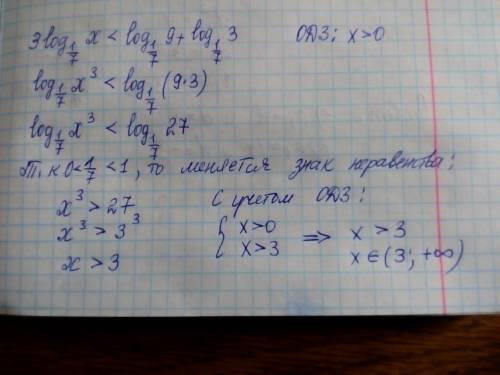 3log_{1/7} x < log_{1/7} 9 + log_{1/7} 3 ОДЗ: x>0
log_{1/7} x³ < log_{1/7} (9·3)
log_{1/7} x³ < log_{1/7} 27
Т.к 0<1/7<1, то меняется знак неравенства:
x³ > 27 С учетом ОДЗ:
x³ > 3³ { x>0 ⇒ x > 3
x > 3 x>3 x∈(3; +∞)